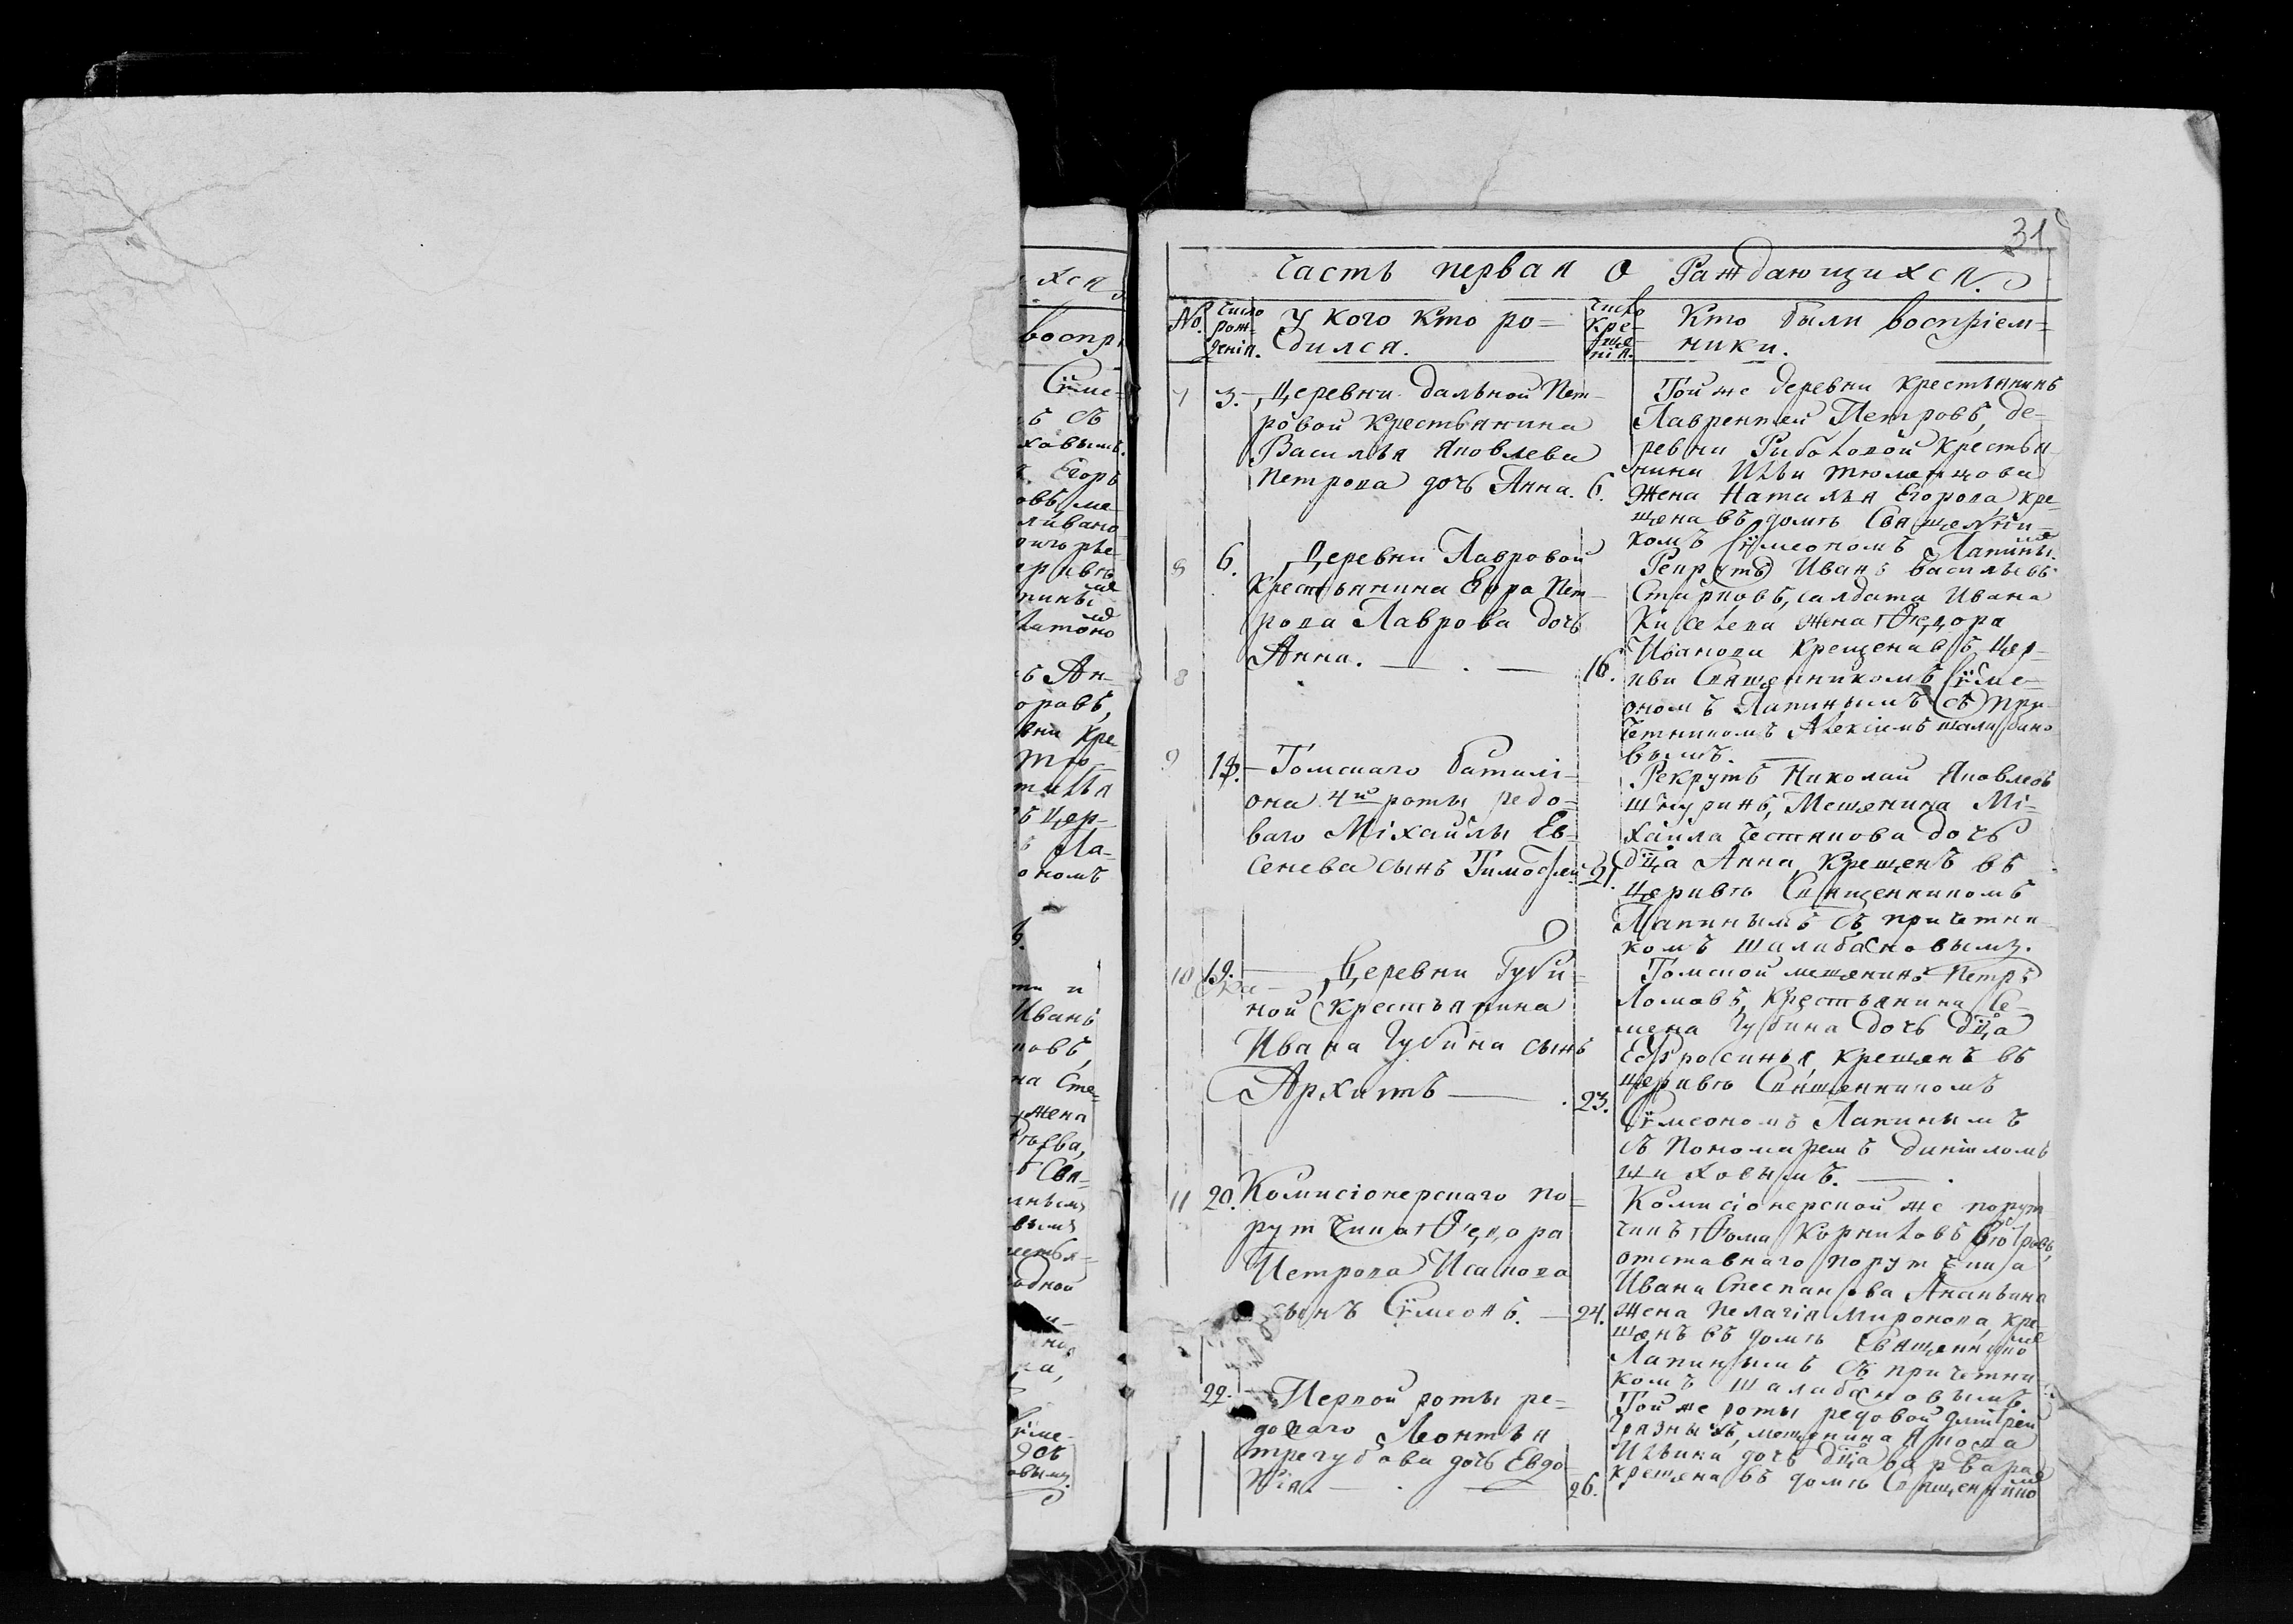 хся
воспрі
Сѵме-
ъ съ
ховымъ.
Егоръ
овъ, ме-
ливано
церквѣ
ъ Ан-
оровъ,
вни кре
тю-
талья
ъ цер-
Ла-
ономъ
Иванъ
новъ,
на Сте-
жена
ѣева,
ъ Свя-
нымъ
вымъ
одной
на,
Сѵме-
съ
овымъ.
31
Часть первая о Раждающихся.
No. число рож- денія.
У кого кто ро-
дился.
число кре- ще- нія.
Кто были воспріем-
ники.
7 3. Деревни Дальной Пет-
ровой крестьянина
Василья Яковлева
Петрова дочь Анна. 6.
Той же деревни крестьянинъ
Лаврентей Петровъ, де-
ревни Рыбаловой крестья-
нина Ильи Тюменцова
жена Наталья Егорова, кре-
щена въ домѣ Священни-
комъ Сѵмеономъ Лапины.мъ
8 6. Деревни Лавровой
Крестьянина Егора Пет-
рова Лаврова дочь
Анна. — . — 16.
8
Рекрутъ Иванъ Васильевъ
Старковъ, салдата Ивана
Киселева жена Ѳедора
Иванова крещена въ цер-
кви Священникомъ Сѵме-
ономъ Лапинымъ съ при-
четникомъ Алексіемъ Шалабано-
вымъ.
9 18. Томскаго баталі-
она 4й роты редо-
ваго Міхайлы Ев-
сеева сынъ Тимофей 21.
Рекрутъ Николай Яковлевъ
Шнуринъ, Мещанина Мі-
хайла Честнкова дочь
дѣца Анна, крещенъ въ
церквѣ Священникомъ
Лапинымъ съ причетни-
комъ Шалабановымъ.
10 19. Деревни Губи-
ной Крестьянина
Ивана Губина сынъ
Архипъ — . 23.
Томской мещанинъ Петръ
Ломовъ, Крестьянина Се-
мена Губина дочь дѣца
Ефросинья, крещенъ въ
церквѣ Священникомъ
Сѵмеономъ Лапинымъ
съ Пономаремъ Даніиломъ
Шиховымъ. — .
11 20. Комисіонерскаго по-
рутчика Ѳедора
Петрова Исакова
сынъ Сѵмеонъ. — 24.
Комисіонерской же порут
чикъ Ѳома Корниловъ
отставнаго порутчика
Ивана Степанова Ананьина
жена Пелагія Миронова, кре-
щенъ въ домѣ Священникомъ
Лапинымъ съ причетни-
комъ Шалабановымъ
22. Первой роты ре-
доваго Леонтья
Трегубова дочь Евдо-
кія. — . — 26.
Той же роты редовой Дмитрей
Грязныхъ, мещанина Якова
Ильина дочь дѣца Варвара
крещена въ домѣ Священникомъ